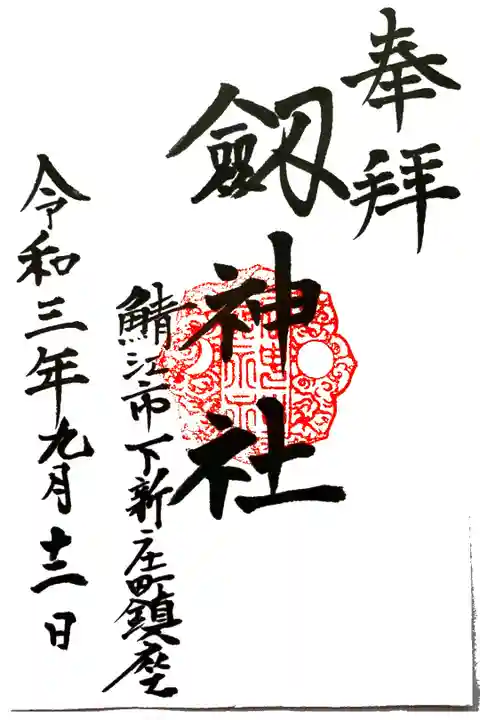 奉拝
劔神社
鯖江市下新庄町鎮座
令和三年九月十二日